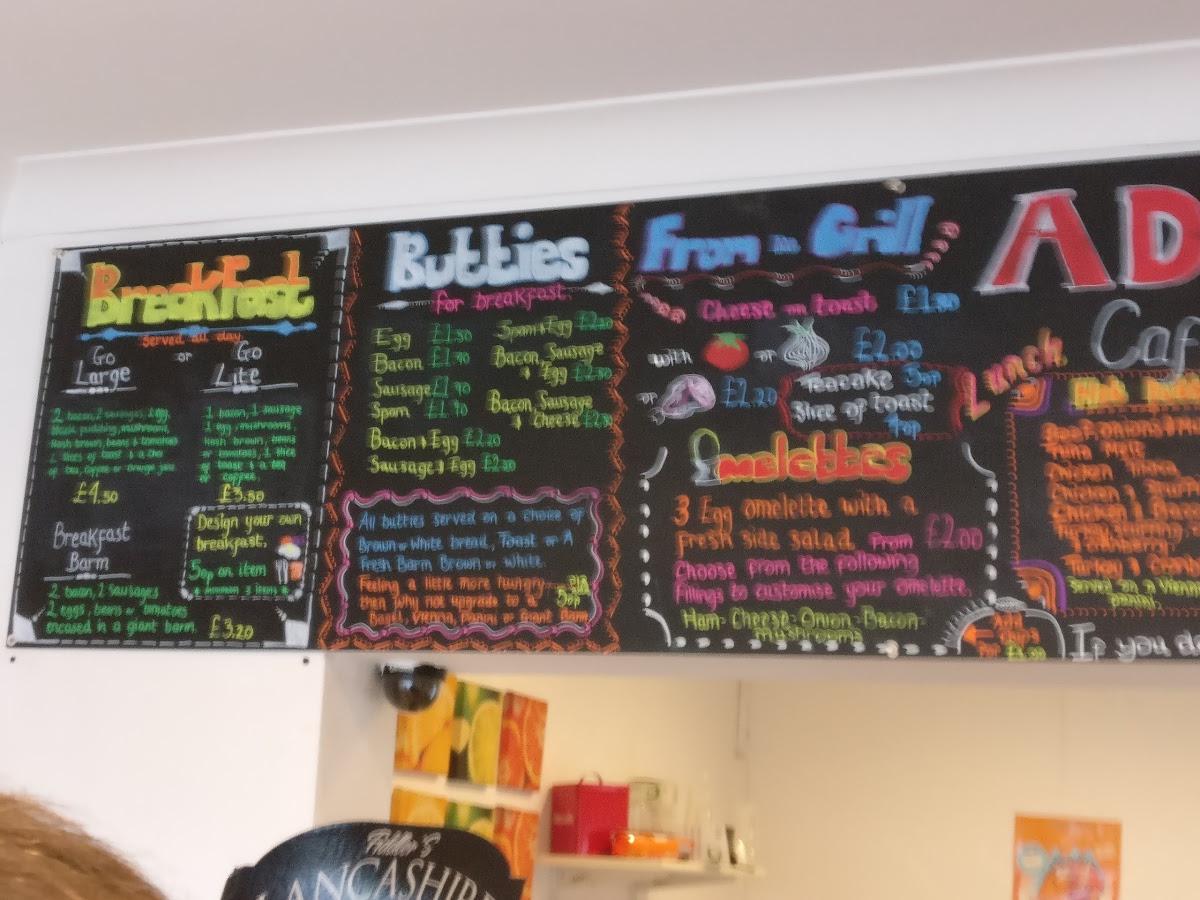 Breakfast
Served all day
Go Large
or
Go Lite
2 bacon, 2 sausages, 1 egg,
Black pudding, mushrooms,
Hash brown, beans & tomatoes
2 slices of toast & a tea
of tea, coffee or orange juice
£4.50
1 bacon, 1 sausage
1 egg, mushrooms,
Hash brown, beans
or tomatoes, 1 slice
of toast & a tea
or coffee.
£3.50
Breakfast
Barm
2 bacon, 2 sausages
2 eggs, beans or tomatoes
encased in a giant barm. £3.20
Design your own
breakfast.
50p an item
minimum 3 items
Butties
for breakfast.
Egg £1.50
Bacon
Sausage £1.90
Spam £1.90
Bacon & Egg £2.20
Sausage & Egg
Spam & Egg
Bacon, Sausage
& Egg £2.50
Bacon, Sausage
& Cheese £2.50
All butties served on a choice of
Brown or White bread, Toast or A
Fresh Barm Brown or white.
Feeling a little more hungry
then why not upgrade to a
Bagel, Vienna, Panini or Giant Barm
50p
From the Grill
Cheese on toast
with or £2.00
or £2.20
Teacake 50p
Slice of toast
40p
Omelettes
3 Egg omelette with a
fresh side salad From £2.00
Choose from the following
fillings to customise your omelette.
Ham-Cheese-Onion-Bacon-
mushrooms
AD
Caf
Lunch
Beef, onions &
Tuna Melt
Chicken
Chicken
Chicken &
Turkey &
Served on a Vienna
panini
Add
Chips
For
If you d
Fiddler's
LANCASHIRE